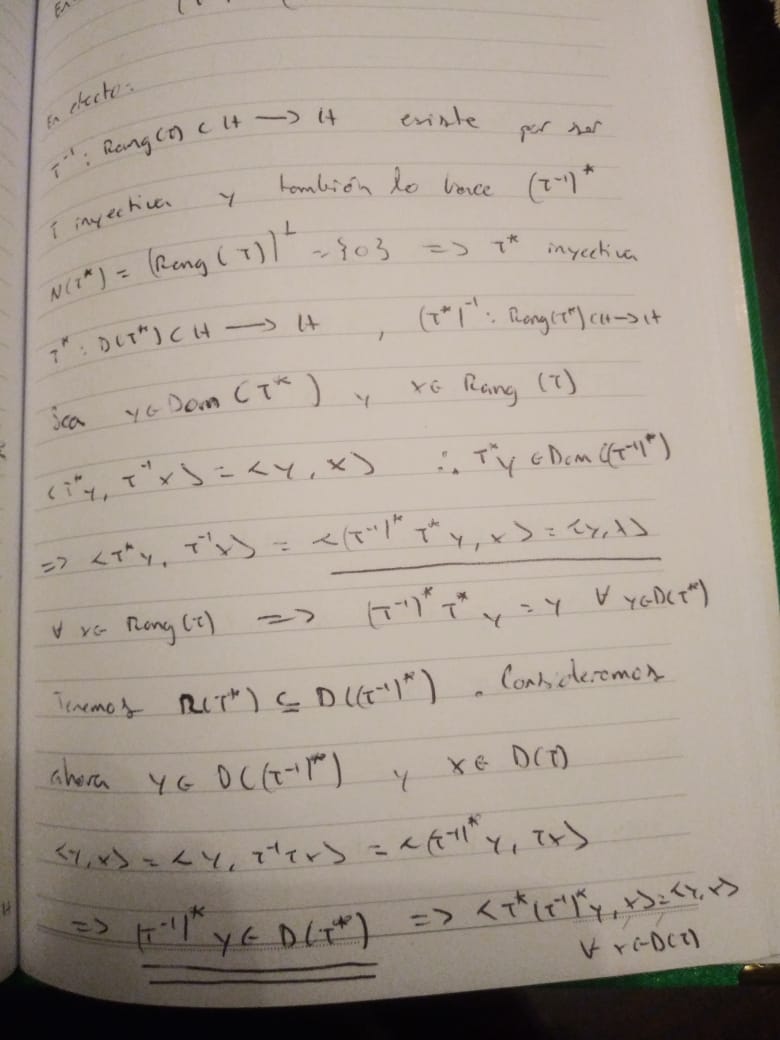 En efecto:
T⁻¹: Rang(T) ⊂ H → H existe por ser
T inyectiva y también lo hace (T⁻¹)*
N(T*) = (Rang(T))^⊥ = {0} => T* inyectiva
T*: D(T*) ⊂ H → H , (T*)⁻¹: Rang(T*) ⊂ H → H
Sea y ∈ Dom(T*) y x ∈ Rang(T)
<T*y, T⁻¹x> = <y, x> ∴ T*y ∈ Dom((T⁻¹)*)
=> <T*y, T⁻¹x> = <(T⁻¹)* T* y, x> = <y, x>
∀ x ∈ Rang(T) => (T⁻¹)* T* y = y ∀ y ∈ D(T*)
Tenemos R(T*) ⊆ D((T⁻¹)*) . Consideremos
ahora y ∈ D((T⁻¹)*) y x ∈ D(T)
<y, x> = <y, T⁻¹Tx> = <(T⁻¹)* y, Tx>
=> (T⁻¹)* y ∈ D(T*) => <T*(T⁻¹)* y, x> = <y, x>
∀ x ∈ D(T)